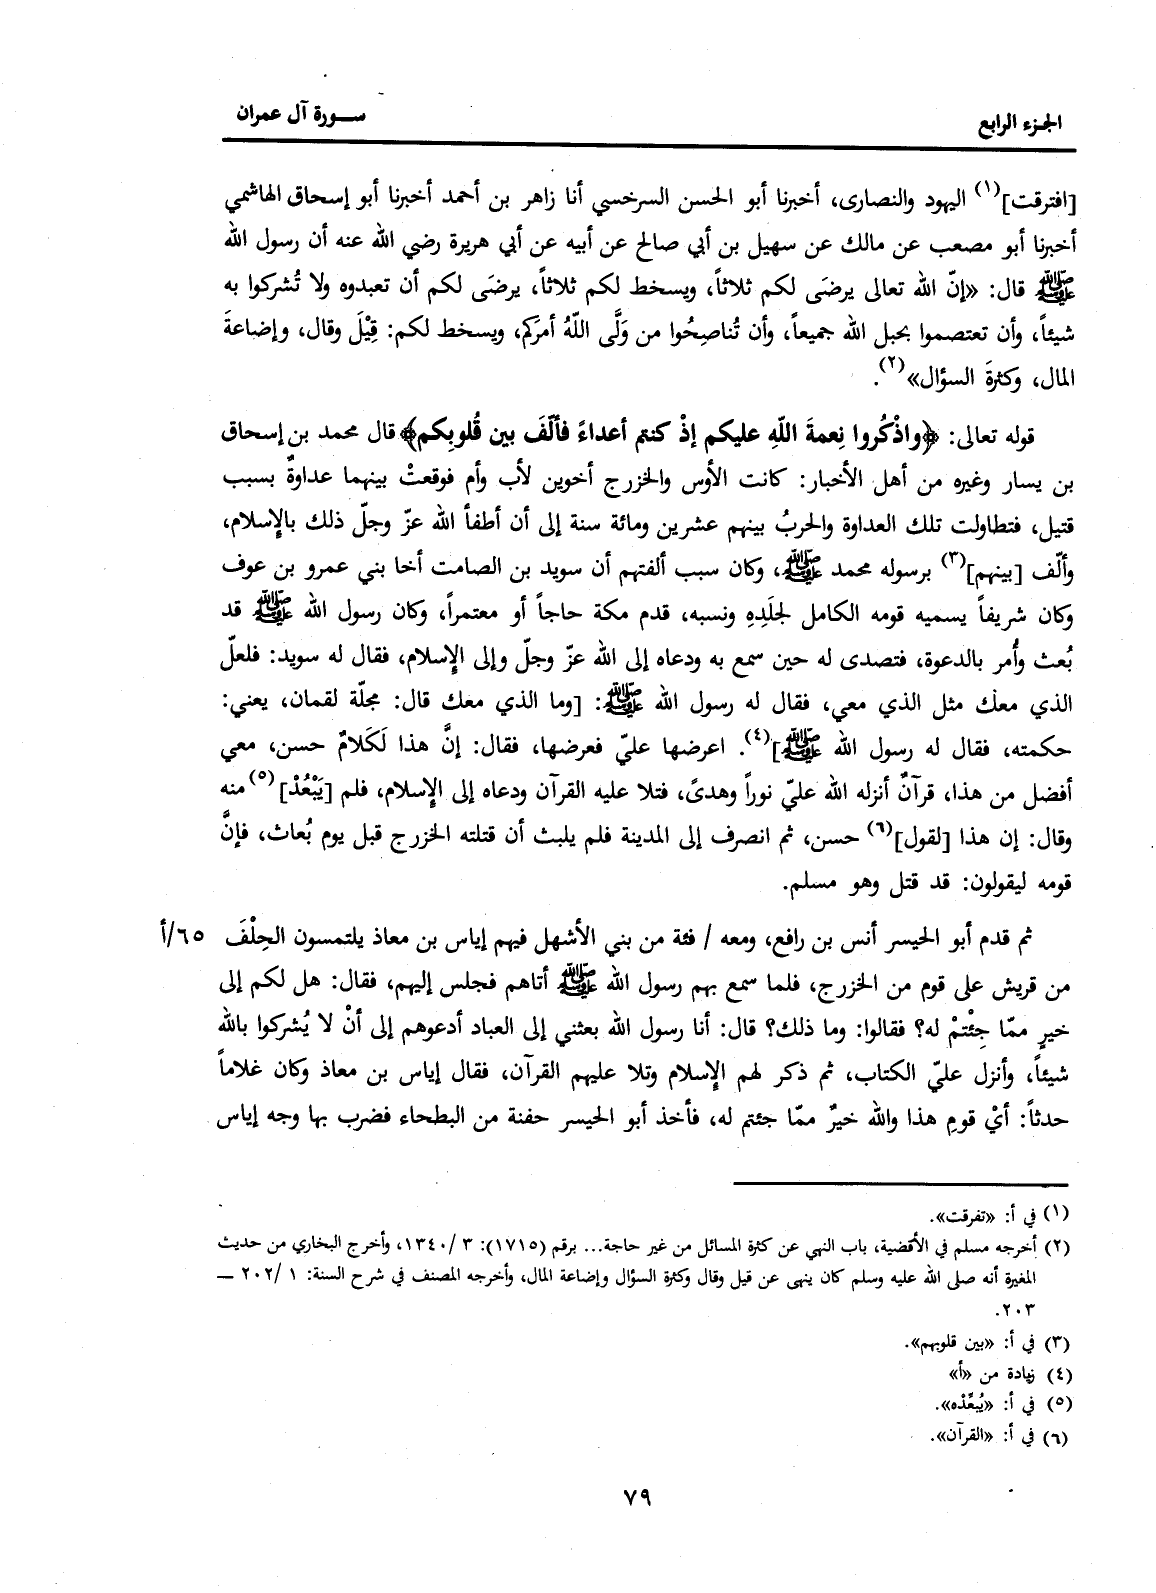 الجزء الرابع
سورة آل عمران
[افترقت](١) اليهود والنصارى، أخبرنا أبو الحسن السرخسي أنا زاهر بن أحمد أخبرنا أبو إسحاق الهاشمي
أخبرنا أبو مصعب عن مالك عن سهيل بن أبي صالح عن أبيه عن أبي هريرة رضي الله عنه أن رسول الله
ﷺ قال: «إنّ الله تعالى يرضَى لكم ثلاثاً، ويسخط لكم ثلاثاً، يرضَى لكم أن تعبدوه ولا تُشركوا به
شيئاً، وأن تعتصموا بحبل الله جميعاً، وأن تُناصِحُوا من وَلَّى اللّهُ أمرَكم، ويسخط لكم: قِيْلَ وقال، وإضاعةَ
المال، وكثرةَ السؤال»(٢).
قوله تعالى: ﴿واذْكُروا نِعمةَ اللّهِ عليكم إذْ كنتم أعداءً فألّفَ بين قُلوبِكم﴾ قال محمد بن إسحاق
بن يسار وغيره من أهل الأخبار: كانت الأوس والخزرج أخوين لأب وأم فوقعتْ بينهما عداوةٌ بسبب
قتيل، فتطاولت تلك العداوة والحربُ بينهم عشرين ومائة سنة إلى أن أطفأ الله عزّ وجلّ ذلك بالإسلام،
وألّف [بينهم](٣) برسوله محمد ﷺ، وكان سبب ألفتهم أن سويد بن الصامت أخا بني عمرو بن عوف
وكان شريفاً يسميه قومه الكامل لجلَدِهِ ونسبه، قدم مكة حاجاً أو معتمراً، وكان رسول الله ﷺ قد
بُعث وأُمر بالدعوة، فتصدى له حين سمع به ودعاه إلى الله عزّ وجلّ وإلى الإسلام، فقال له سويد: فلعلّ
الذي معك مثل الذي معي، فقال له رسول الله ﷺ: [وما الذي معك قال: مجلّة لقمان، يعني:
حكمته، فقال له رسول الله ﷺ](٤). اعرضها عليّ فعرضها، فقال: إنَّ هذا لَكَلامٌ حسن، معي
أفضل من هذا، قرآنٌ أنزله الله عليّ نوراً وهدىً، فتلا عليه القرآن ودعاه إلى الإسلام، فلم [يَبْعُدْ](٥) منه
وقال: إن هذا [لقول](٦) حسن، ثم انصرف إلى المدينة فلم يلبث أن قتلته الخزرج قبل يوم بُعاث، فإنَّ
قومه ليقولون: قد قتل وهو مسلم.
ثم قدم أبو الحيسر أنس بن رافع، ومعه / فئة من بني الأشهل فيهم إياس بن معاذ يلتمسون الحِلْفَ ٦٥/أ
من قريش على قوم من الخزرج، فلما سمع بهم رسول الله ﷺ أتاهم فجلس إليهم، فقال: هل لكم إلى
خيرٍ ممّا جِئْتمْ له؟ فقالوا: وما ذلك؟ قال: أنا رسول الله بعثني إلى العباد أدعوهم إلى أنْ لا يُشركوا بالله
شيئاً، وأنزل عليّ الكتاب، ثم ذكر لهم الإسلام وتلا عليهم القرآن، فقال إياس بن معاذ وكان غلاماً
حدثاً: أيْ قومِ هذا والله خيرٌ ممّا جئتم له، فأخذ أبو الحيسر حفنة من البطحاء فضرب بها وجه إياس
(١) في أ: «تفرقت».
(٢) أخرجه مسلم في الأقضية، باب النهي عن كثرة المسائل من غير حاجة... برقم (١٧١٥): ٣ /١٣٤٠، وأخرج البخاري من حديث
المغيرة أنه صلى الله عليه وسلم كان ينهى عن قيل وقال وكثرة السؤال وإضاعة المال، وأخرجه المصنف في شرح السنة: ١ /٢٠٢ ــ
٢٠٣.
(٣) في أ: «بين قلوبهم».
(٤) زيادة من «أ»
(٥) في أ: «يُبعِّدْه».
(٦) في أ: «القرآن».
٧٩